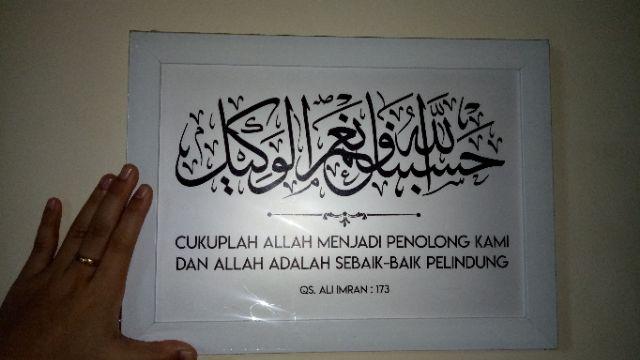 حسبنا الله ونعم الوكيل
CUKUPLAH ALLAH MENJADI PENOLONG KAMI
DAN ALLAH ADALAH SEBAIK-BAIK PELINDUNG
QS. ALI IMRAN : 173